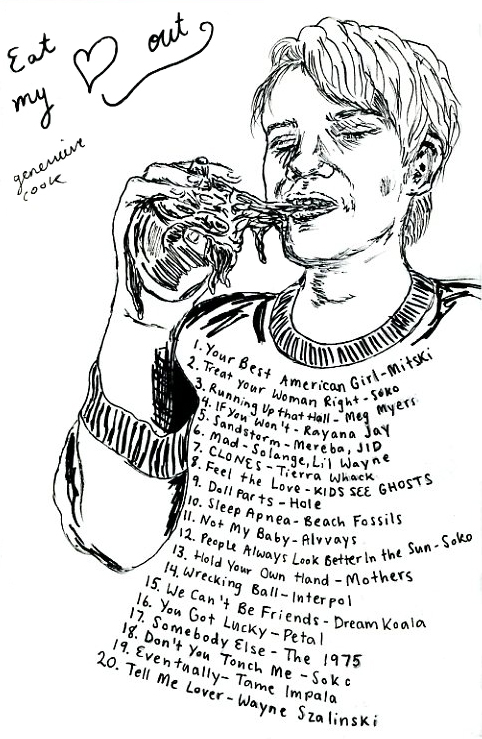 Eat
my ♡ out
genevieve
cook
1. Your Best American Girl-Mitski
2. Treat Your Woman Right-Soko
3. Running Up that Hall - Meg Myers
4. If You Won't - Rayana Jay
5. Sandstorm - Mereba, JID
6. Mad - Solange, Li'l Wayne
7. CLONES - Tierra Whack
8. Feel the Love - KIDS SEE GHOSTS
9. Doll Parts - Hole
10. Sleep Apnea - Beach Fossils
11. Not My Baby - Alvvays
12. People Always Look Better In the Sun - Soko
13. Hold Your Own Hand - Mothers
14. Wrecking Ball - Interpol
15. We Can't Be Friends - Dream Koala
16. You Got Lucky - Petal
17. Somebody Else - The 1975
18. Don't You Touch Me - Soko
19. Eventually - Tame Impala
20. Tell Me Lover - Wayne Szalinski